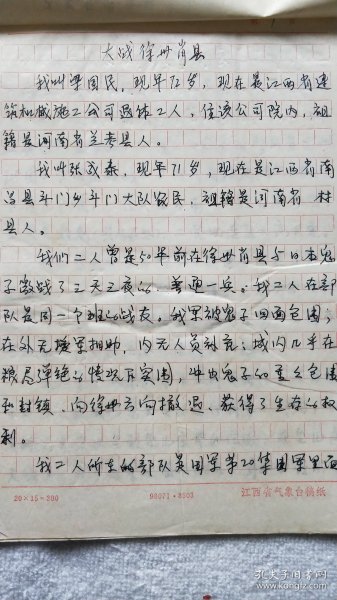 大战徐州肖县
我叫梁国民，现年72岁，现在是江西省建
筑机械施工公司退休工人，住该公司院内，祖
籍是河南省兰考县人。
我叫张成泰，现年71岁，现在是江西省南
昌县斗门乡斗门大队农民，祖籍是河南省 杜
县人。
我们二人曾是50年前在徐州肖县与日本鬼
子激战了三天三夜的，普通一兵。我二人在部
队是同一个班的战友。我军被鬼子四面包围；
在外无援军相助，内无人员补充；城内几乎在
粮尽弹绝的情况下突围，冲出鬼子的重重包围
和封锁，向徐州方向撤退，获得了生存的权
利。
我二人所在的部队是国军第20集团军里面
20×15=300
90071·8503
江西省气象台稿纸
孔夫子旧书网
www.kongfz.com